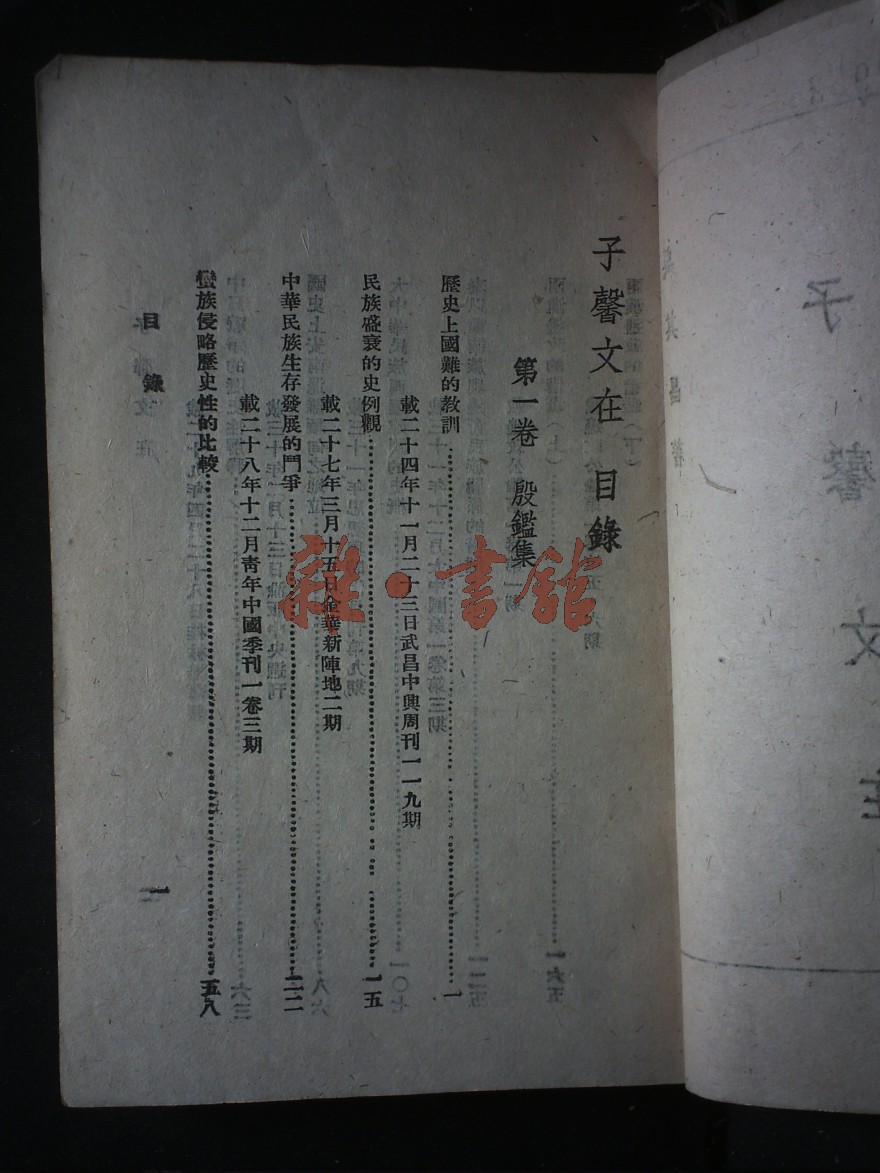 子馨文在 目錄
第一卷 殷鑑集
歷史上國難的教訓 一
載二十四年十一月二十三日武昌中興周刊一一九期
民族盛衰的史例觀 一五
載二十七年三月十五日金華新陣地二期
中華民族生存發展的鬥爭 二二
載二十八年十二月青年中國季刊一卷三期
蠻族侵略歷史性的比較 五八
目錄
一
雜·書館